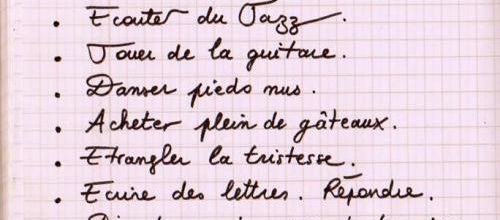 • Ecouter du Jazz.
• Jouer de la guitare.
• Danser pieds nus.
• Acheter plein de gâteaux.
• Etrangler la tristesse.
• Ecrire des lettres. Répondre.